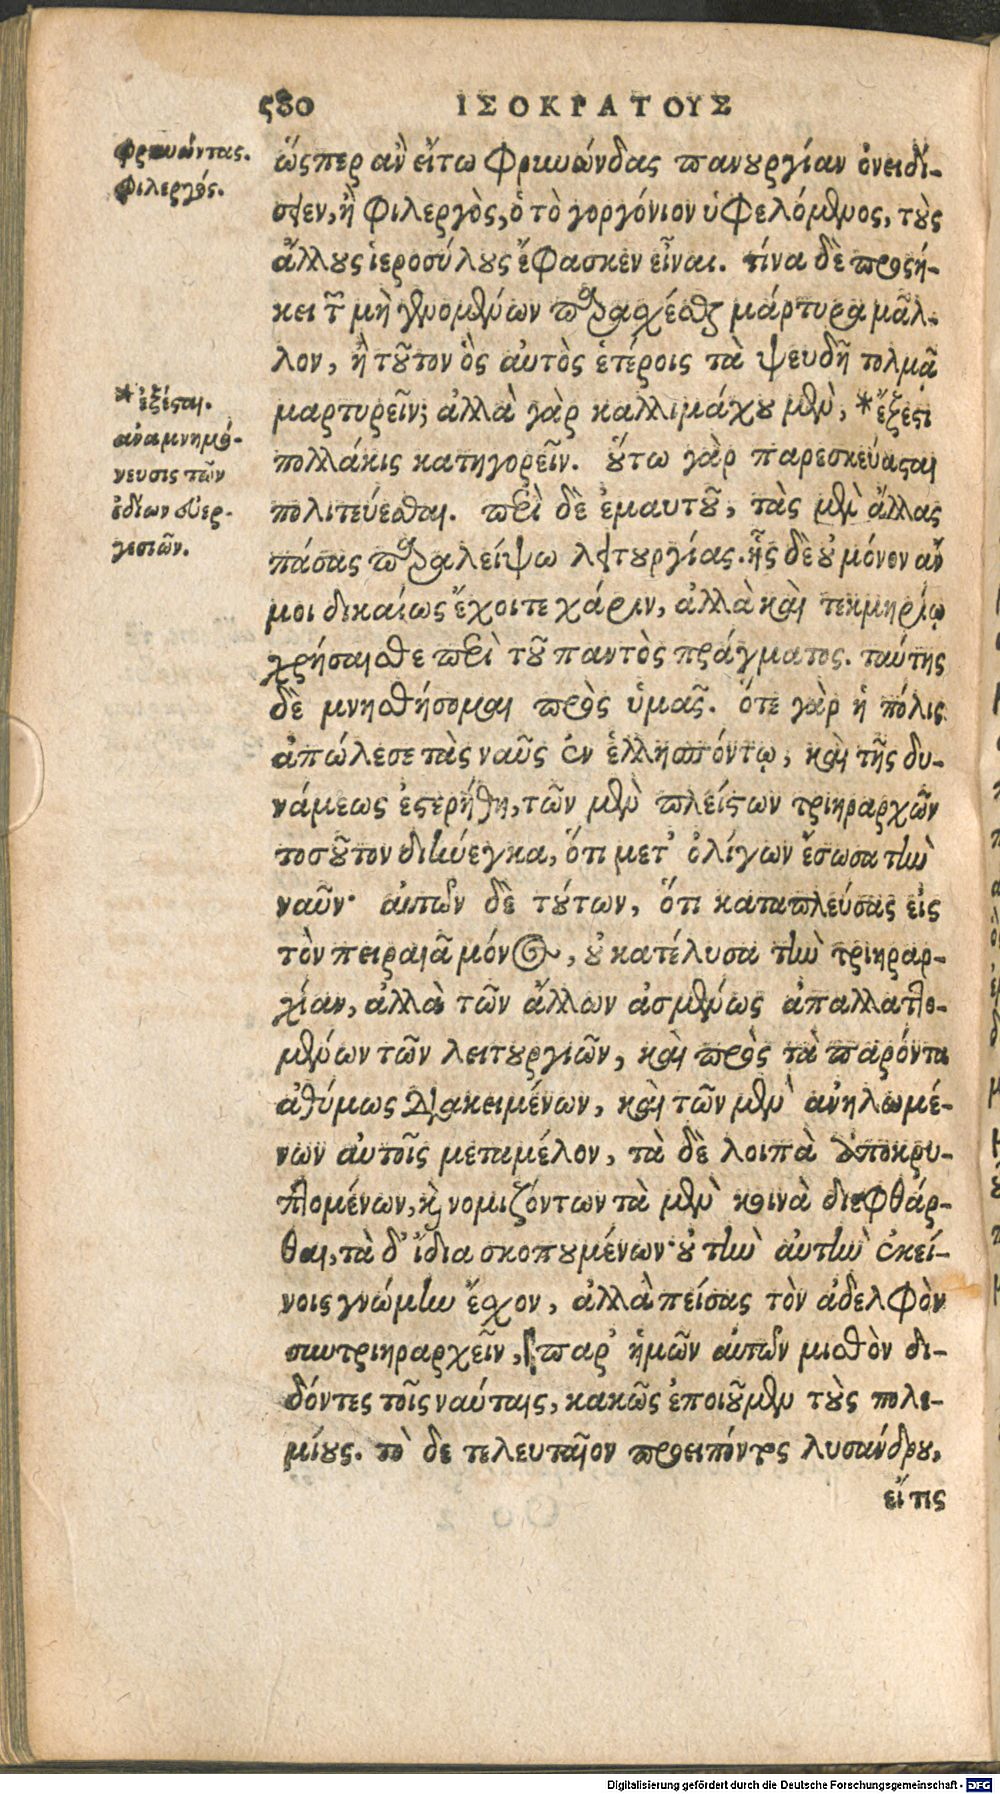 580 ΙΣΟΚΡΑΤΟΥΣ
ὥσπερ ἂν εἴ τῳ Φρυνώνδας πανουργίαν ὀνειδί-
σειεν, ἢ Φιλεργὸς, ὁ τὸ γοργόνιον ὑφελόμενος, τοὺς
ἄλλους ἱεροσύλους ἔφασκεν εἶναι. τίνα δὲ προσή-
κει τῶν μὴ γενομένων παραχέσθαι μάρτυρα μᾶλ-
λον, ἢ τοῦτον ὃς αὐτὸς ἑτέροις τὰ ψευδῆ τολμᾷ
μαρτυρεῖν; ἀλλὰ γὰρ καλλιμάχου μὲν, *ἔξεστι
πολλάκις κατηγορεῖν. οὕτω γὰρ παρεσκεύασται
πολιτεύεσθαι. περὶ δὲ ἐμαυτοῦ, τὰς μὲν ἄλλας
πάσας παραλείψω λειτουργίας. ἧς δὲ οὐ μόνον ἄν
μοι δικαίως ἔχοιτε χάριν, ἀλλὰ καὶ τεκμηρίῳ
χρήσαισθε περὶ τοῦ παντὸς πράγματος. ταύτης
δὲ μνησθήσομαι πρὸς ὑμᾶς. ὅτε γὰρ ἡ πόλις
ἀπώλεσε τὰς ναῦς ἐν ἑλλησπόντῳ, καὶ τῆς δυ-
νάμεως ἐστερήθη, τῶν μὲν πλείστων τριηραρχῶν
τοσοῦτον διήνεγκα, ὅτι μετ' ὀλίγων ἔσωσα τὴν
ναῦν· αὐτῶν δὲ τούτων, ὅτι καταπλεύσας εἰς
τὸν πειραιᾶ μόνος, οὐ κατέλυσα τὴν τριηραρ-
χίαν, ἀλλὰ τῶν ἄλλων ἀσμένως ἀπαλλαττο-
μένων τῶν λειτουργιῶν, καὶ πρὸς τὰ παρόντα
ἀθύμως διακειμένων, καὶ τῶν μὲν ἀνηλωμέ-
νων αὐτοῖς μεταμέλον, τὰ δὲ λοιπὰ ἀποκρυ-
πτομένων, καὶ νομιζόντων τὰ μὲν κοινὰ διεφθάρ-
θαι, τὰ δ' ἴδια σκοπουμένων· οὐ τὴν αὐτὴν ἐκεί-
νοις γνώμην ἔσχον, ἀλλὰ πείσας τὸν ἀδελφὸν
συντριηραρχεῖν, παρ' ἡμῶν αὐτῶν μισθὸν δι-
δόντες τοῖς ναύταις, κακῶς ἐποιοῦμεν τοὺς πολε-
μίους. τὸ δὲ τελευταῖον προειπόντος λυσάνδρου,
εἴ τις
φρυνώντας.
Φιλεργός.
*ἐξέσται.
ἀναμνημό-
νευσις τῶν
ἰδίων εὐερ-
γεσιῶν.
Digitalisierung gefördert durch die Deutsche Forschungsgemeinschaft - DFG